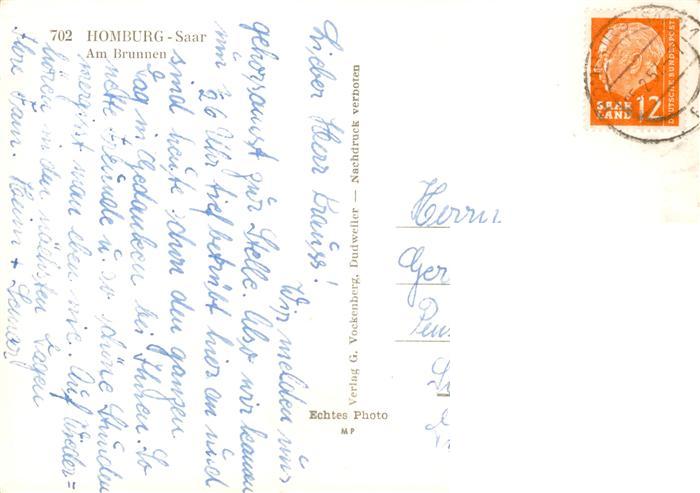 702 HOMBURG - Saar
Am Brunnen
Lieber Herr Krauss!
Wir melden uns
gehorsamst zur Stelle. Also wir kamen
um 26 Uhr tief betrübt hier an und
sind heute schon den ganzen
Tag in Gedanken bei Ihnen. So
nette Freunde u. so schöne Stunden
vergisst man eben nie. Auf Wieder=
hören in den nächsten Tagen
Ihre Fam. Heim +
Verlag G. Vockenberg, Dudweiler — Nachdruck verboten
Echtes Photo
MP
SAAR
LAND 12
DEUTSCHE BUNDESPOST
Herrn
Ger
Pen